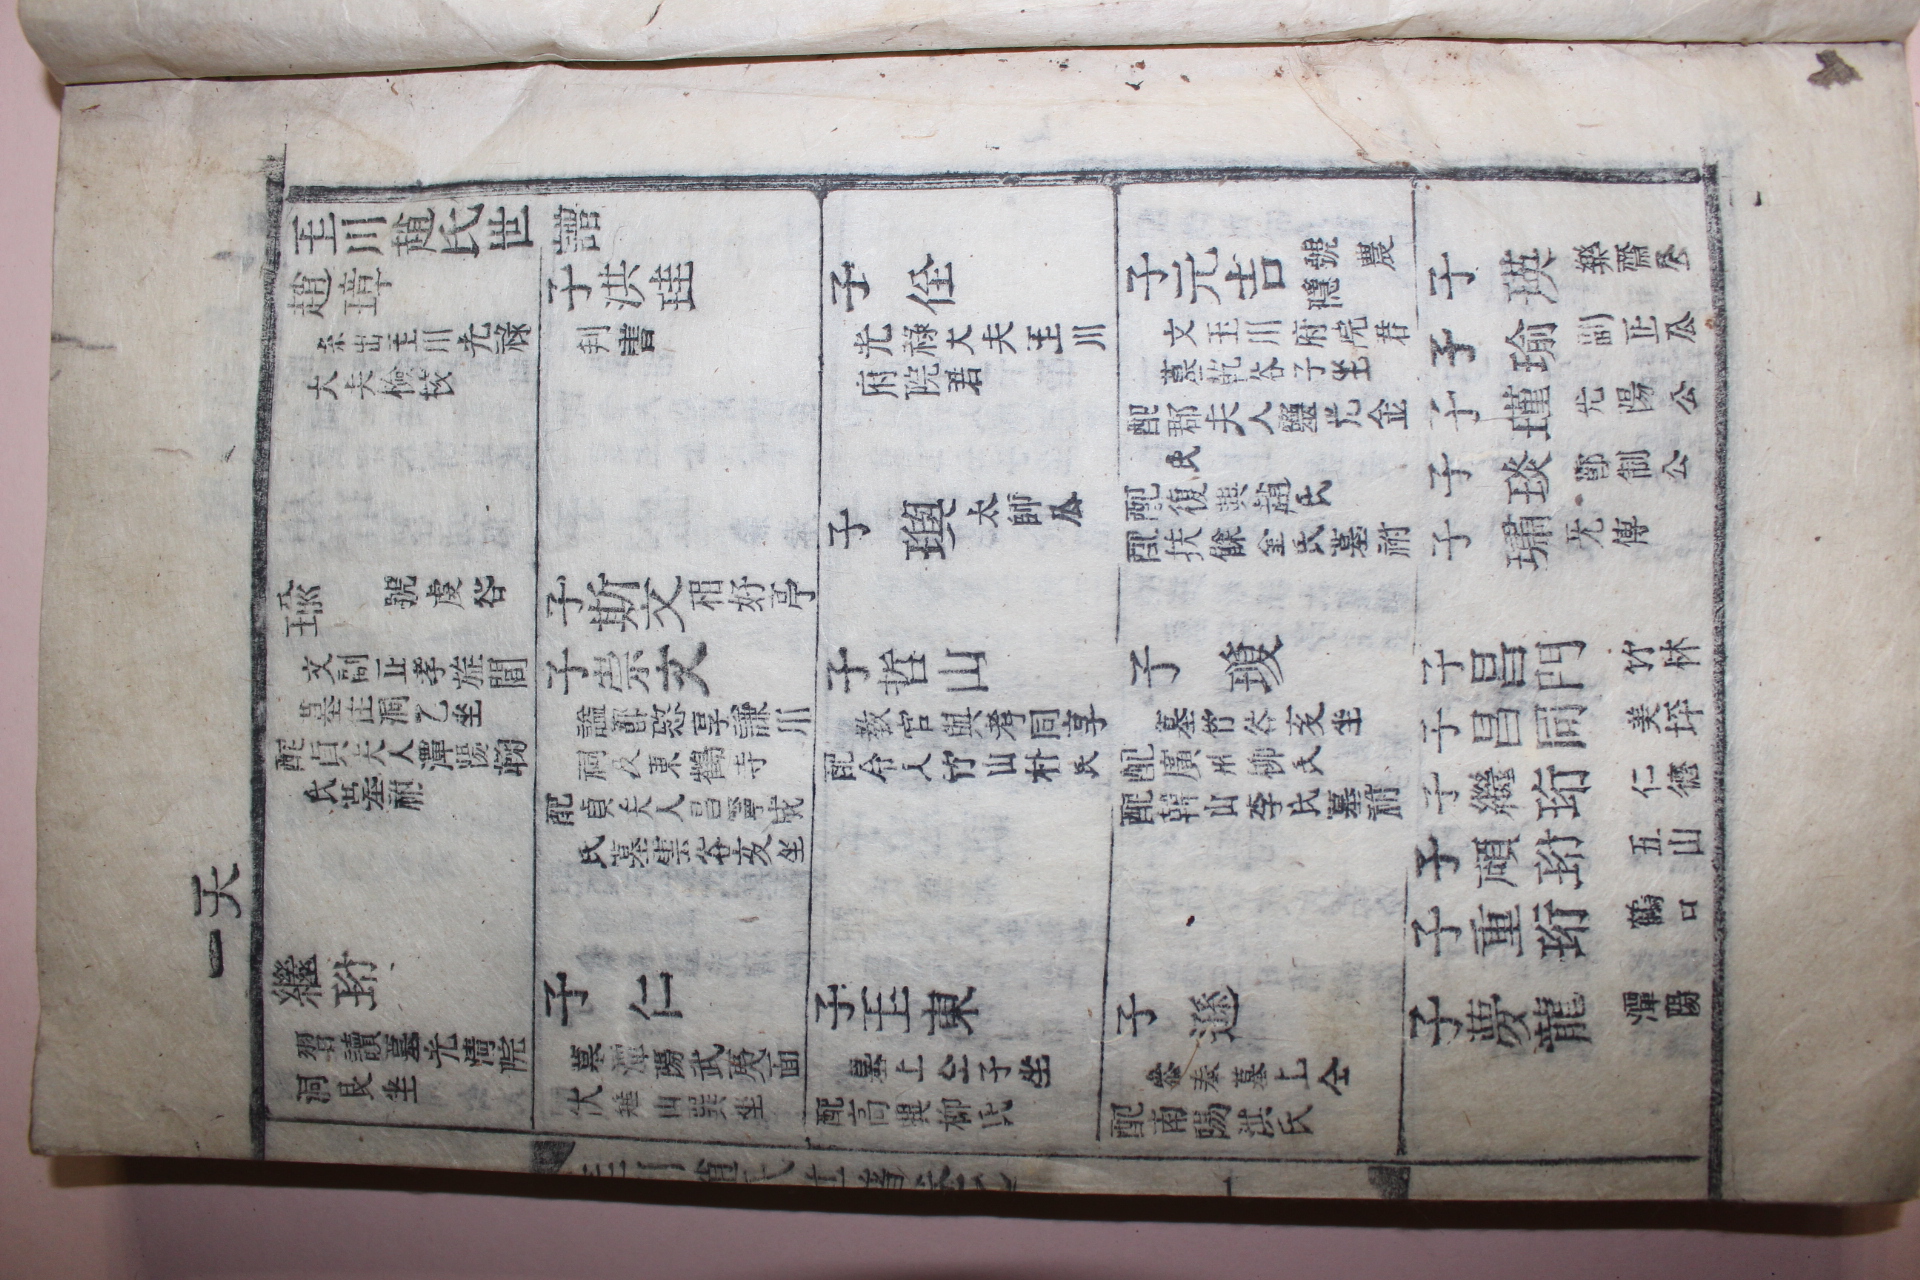 天一
玉川趙氏世譜
趙璋
系出玉川光祿
大夫檢校
琰
號虔谷
文副正孝旌閭
墓庄洞乙坐
配貞夫人潭陽鞠
氏墓祔
繼珩
習讀墓光清院
洞艮坐
子洪珪
判書
子斯文
相好亭
子崇文
謚節愍享謙川
祠及東鶴寺
配貞夫人昌寧成
氏墓雲谷亥坐
子仁
墓潭陽武夷面
山巽坐
子佺
光祿大夫玉川
府院君
子璵
太師公
子哲山
敎官與考同享
配令人竹山朴氏
子玉東
墓上仝子坐
配高興柳氏
子元吉
號農隱
文玉川府院君
墓乾谷子坐
配郡夫人靈光金
氏
配復興趙氏
配扶餘金氏墓祔
子瓊
墓竹谷亥坐
配廣州柳氏
配韓山李氏墓祔
子遜
參奉墓上仝
配南陽洪氏
子瑛
樂齋公
子瑜
副正公
子瑾
光陽公
子琰
節制公
子璛
无傳
子昌門
竹林
子昌同
美坪
子繼珩
仁德
子頔珩
五山
子重珩
鶴口
子夢龍
潭陽
玉川趙氏世譜卷之
一